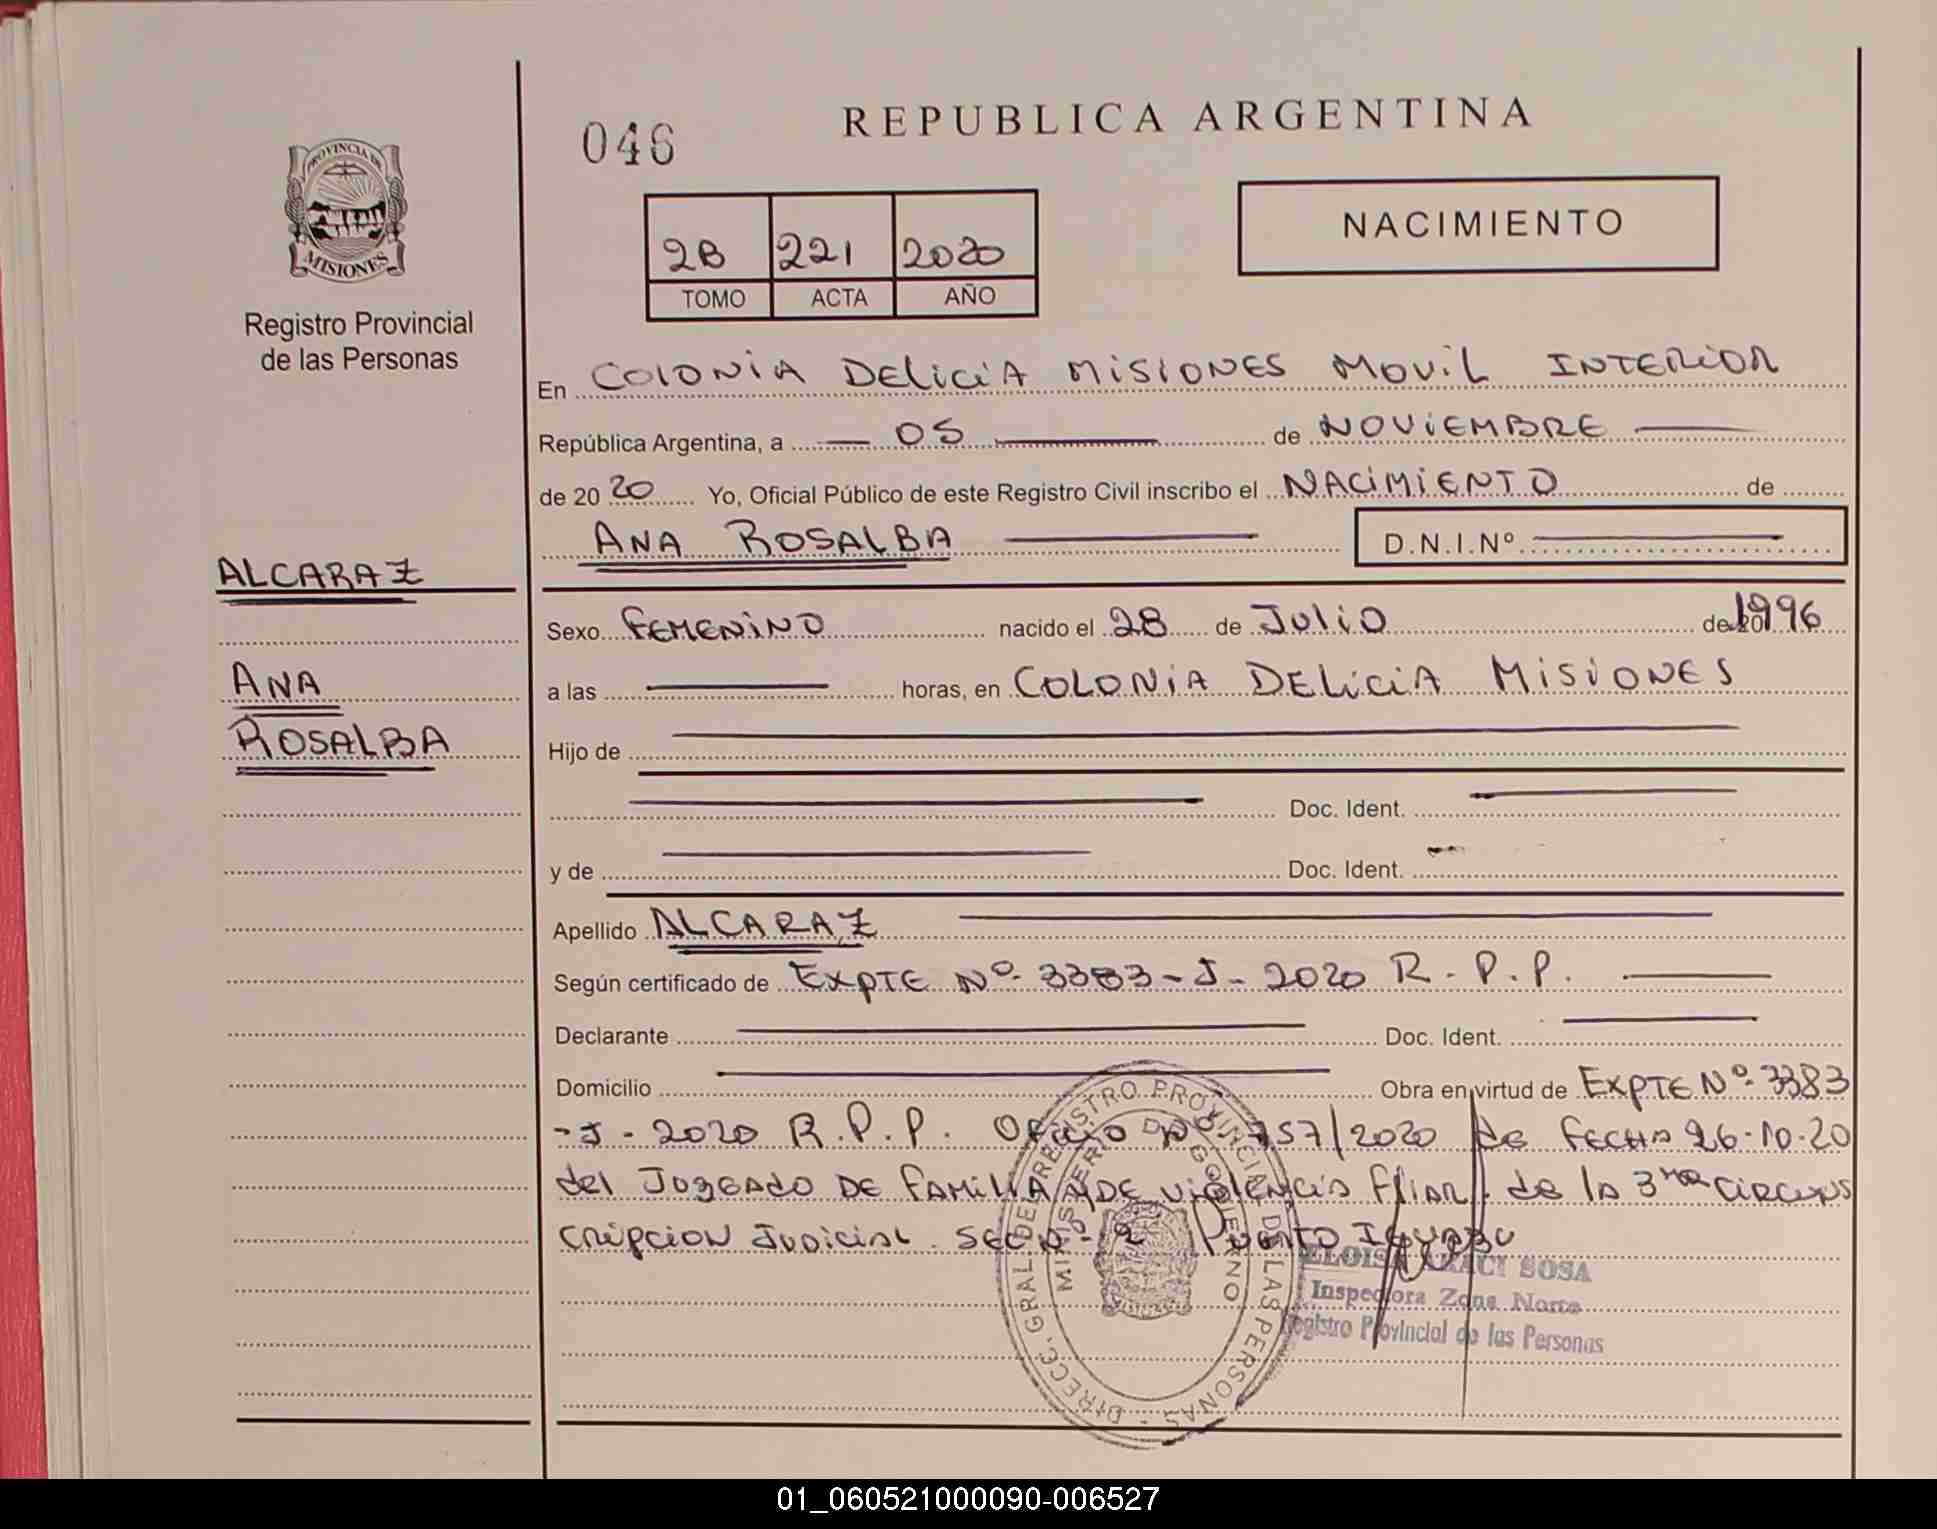 REPUBLICA ARGENTINA
046
PROVINCIA DE
MISIONES
Registro Provincial
de las Personas
2B 221 2020
TOMO ACTA AÑO
NACIMIENTO
En COLONIA DELICIA MISIONES MOVIL INTERIOR
República Argentina, a 05 de NOVIEMBRE
de 20 20 Yo, Oficial Público de este Registro Civil inscribo el NACIMIENTO de
ANA ROSALBA D.N.I.Nº
ALCARAZ
ANA
ROSALBA
Sexo FEMENINO nacido el 28 de JULIO de 1996
a las horas, en COLONIA DELICIA MISIONES
Hijo de
Doc. Ident.
y de Doc. Ident.
Apellido ALCARAZ
Según certificado de EXPTE Nº 3383-J-2020 R.P.P.
Declarante Doc. Ident.
Domicilio Obra en virtud de EXPTE Nº 3383
-J-2020 R.P.P. OFICIO Nº 757/2020 de FECHA 26.10.20
del JUZGADO DE FAMILIA Y DE VIOLENCIA FLIAR. de la 3ra CIRCUNS
CRIPCION JUDICIAL SEC Nº 2 PUERTO IGUAZU
DIRECC. GRAL DEL REGISTRO PROVINCIAL DE LAS PERSONAS
MINISTERIO DE GOBIERNO
ELOISA ARACI SOSA
Inspectora Zona Norte
Registro Provincial de las Personas
01_060521000090-006527